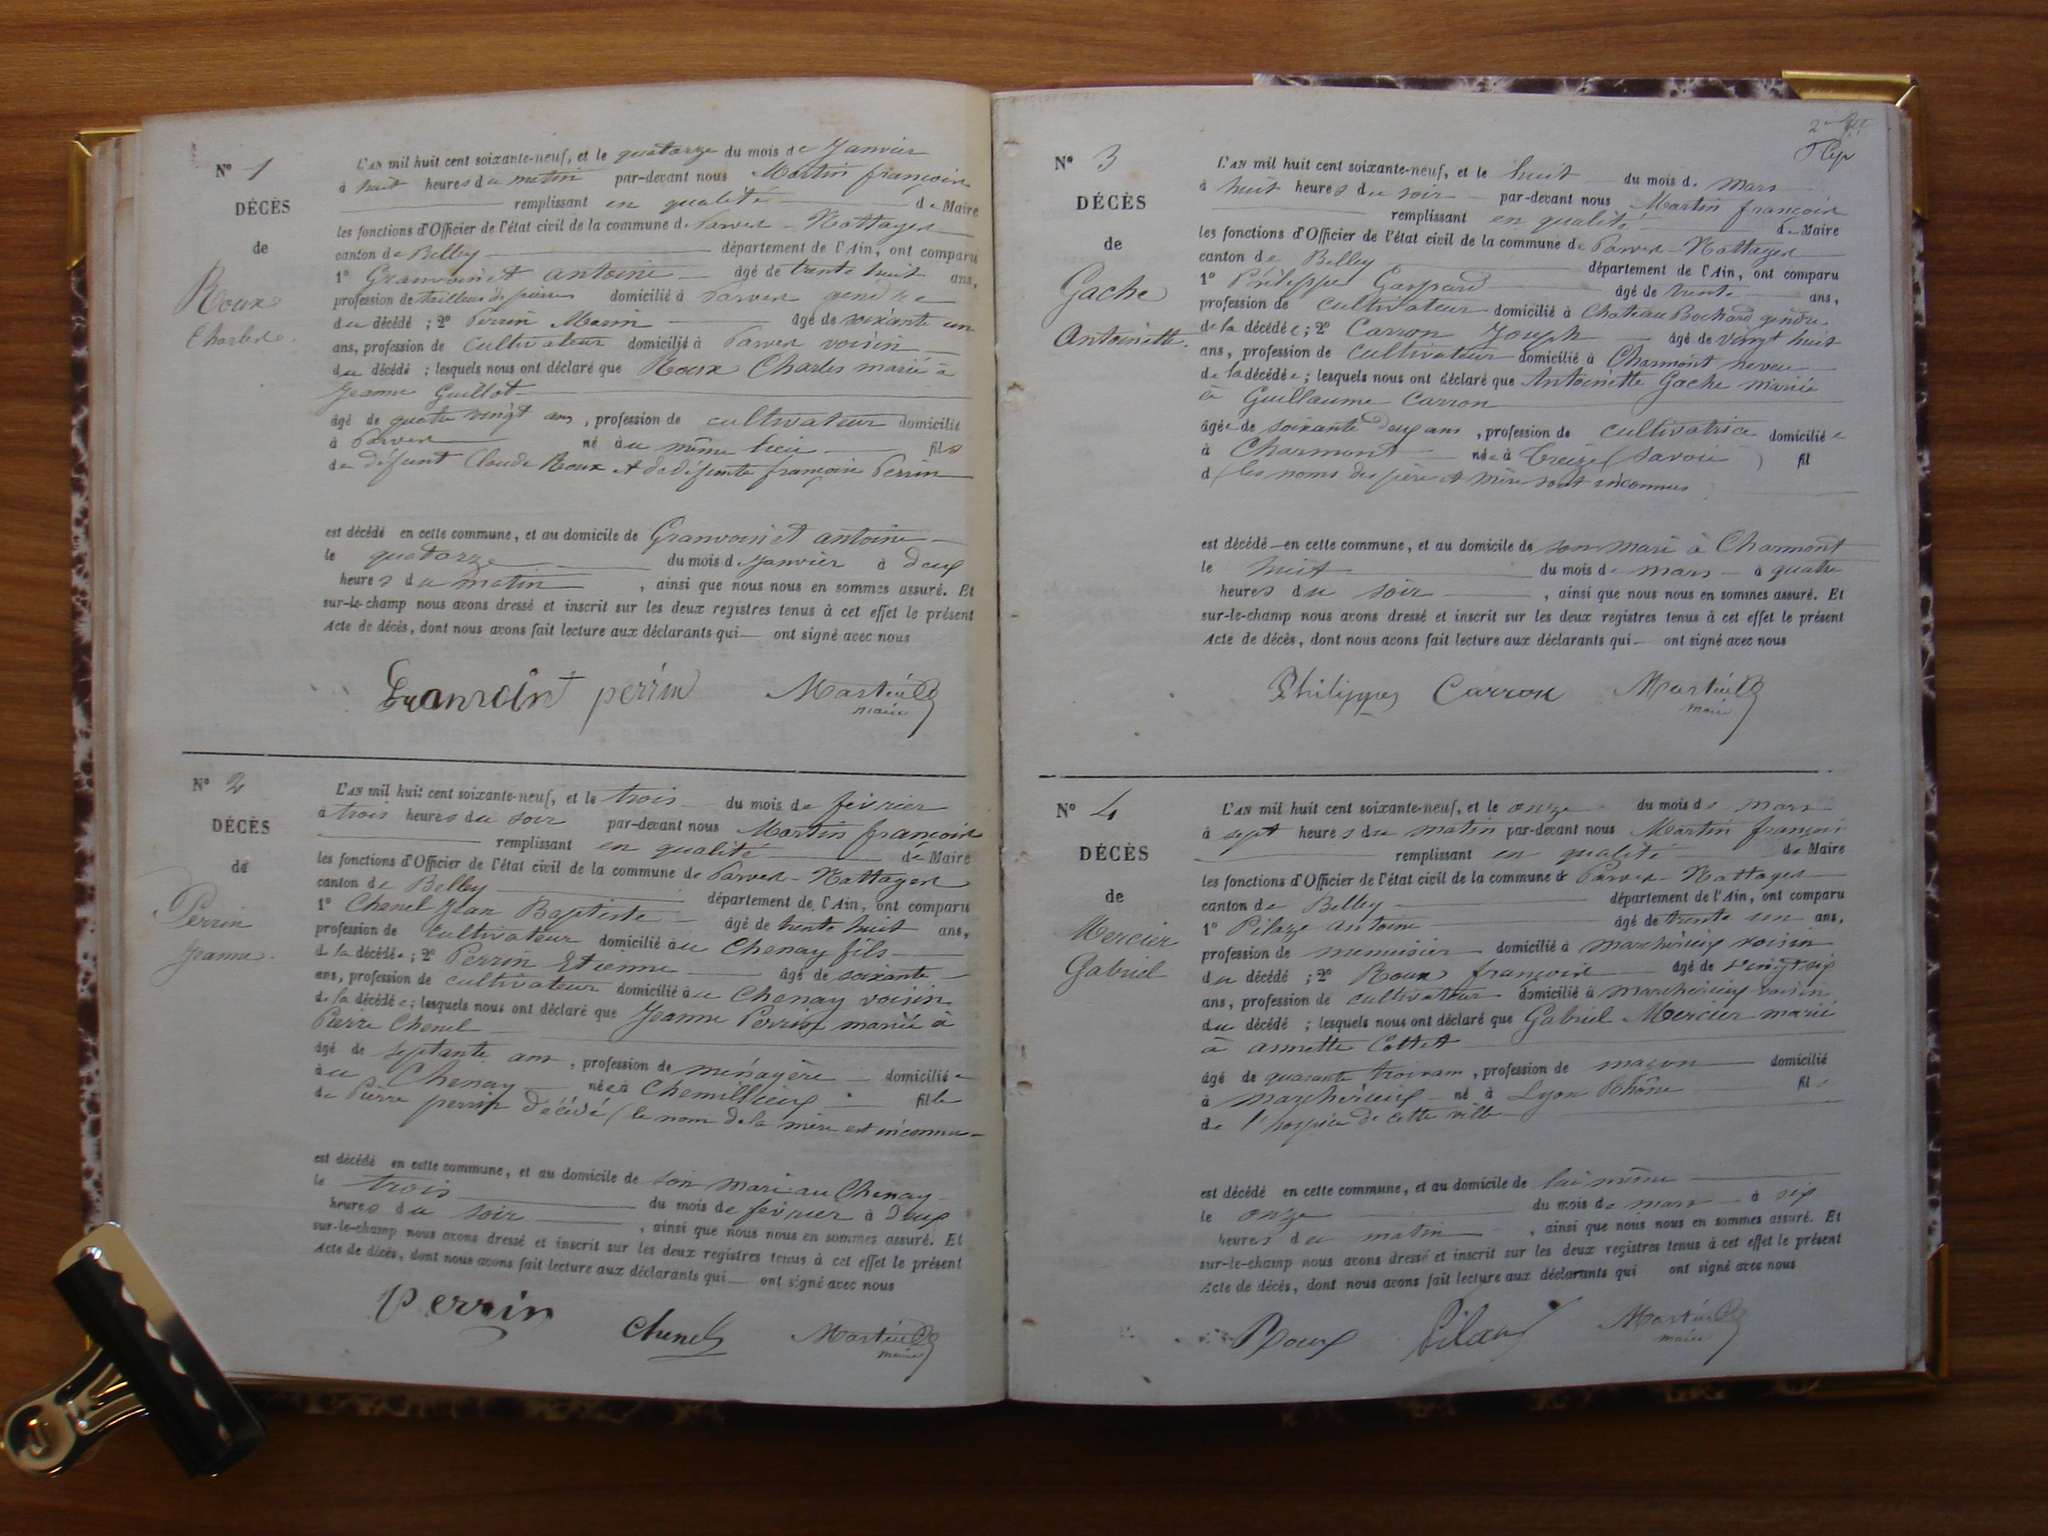 N° 1
DÉCÈS
de
Roux
Charles
L'AN mil huit cent soixante-neuf, et le quatorze du mois de Janvier
à huit heures du matin par-devant nous Martin françois
remplissant en qualité de Maire
les fonctions d'Officier de l'état civil de la commune de Parves-Nattages
canton de Belley département de l'Ain, ont comparu
1° Granvoinet antoine âgé de trente huit ans,
profession de tailleur de pierres domicilié à Parves gendre
du décédé ; 2° Perrin Marin âgé de soixante un
ans, profession de cultivateur domicilié à Parves voisin
du décédé ; lesquels nous ont déclaré que Roux Charles marié à
Jeanne Guillot
âgé de quatre vingt ans, profession de cultivateur domicilié
à Parves né au même lieu fils
de défunt Claude Roux et de défunte françoise Perrin
est décédé en cette commune, et au domicile de Granvoinet antoine
le quatorze du mois de Janvier à deux
heures du matin, ainsi que nous nous en sommes assuré. Et
sur-le-champ nous avons dressé et inscrit sur les deux registres tenus à cet effet le présent
Acte de décès, dont nous avons fait lecture aux déclarants qui ont signé avec nous
perrin Martin
maire
N° 2
DÉCÈS
de
Perrin
Jeanne
L'AN mil huit cent soixante-neuf, et le trois du mois de février
à trois heures du soir par-devant nous Martin françois
remplissant en qualité de Maire
les fonctions d'Officier de l'état civil de la commune de Parves-Nattages
canton de Belley département de l'Ain, ont comparu
1° Chenel Jean Baptiste âgé de trente huit ans,
profession de cultivateur domicilié au Chenay fils
de la décédée ; 2° Perrin Etienne âgé de soixante
ans, profession de cultivateur domicilié au Chenay voisin
de la décédée ; lesquels nous ont déclaré que Jeanne Perrin mariée à
Pierre Chenel
âgé de septante ans, profession de ménagère domiciliée
au Chenay née à Chemillieux fille
de Pierre perrin décédé (le nom de la mère est inconnu
est décédé en cette commune, et au domicile de son mari au Chenay
le trois du mois de février à deux
heures du soir, ainsi que nous nous en sommes assuré. Et
sur-le-champ nous avons dressé et inscrit sur les deux registres tenus à cet effet le présent
Acte de décès, dont nous avons fait lecture aux déclarants qui ont signé avec nous
Perrin Chenel Martin
maire
N° 3
DÉCÈS
de
Gache
Antoinette
L'AN mil huit cent soixante-neuf, et le huit du mois de mars
à huit heures du soir par-devant nous Martin françois
remplissant en qualité de Maire
les fonctions d'Officier de l'état civil de la commune de Parves-Nattages
canton de Belley département de l'Ain, ont comparu
1° Philippes Gaspard âgé de trente ans,
profession de cultivateur domicilié à Chateau Bochard gendre
de la décédée ; 2° Carron Joseph âgé de vingt huit
ans, profession de cultivateur domicilié à Charmont neveu
de la décédée ; lesquels nous ont déclaré que Antoinette Gache mariée
à Guillaume Carron
âgée de soixante deux ans, profession de cultivatrice domiciliée
à Charmont née à (Savoie) fil
d (les noms des père et mère sont inconnus
est décédé en cette commune, et au domicile de son mari à Charmont
le huit du mois de mars à quatre
heures du soir, ainsi que nous nous en sommes assuré. Et
sur-le-champ nous avons dressé et inscrit sur les deux registres tenus à cet effet le présent
Acte de décès, dont nous avons fait lecture aux déclarants qui ont signé avec nous
Philippes Carron Martin
maire
N° 4
DÉCÈS
de
Mercier
Gabriel
L'AN mil huit cent soixante-neuf, et le onze du mois de mars
à sept heures du matin par-devant nous Martin françois
remplissant en qualité de Maire
les fonctions d'Officier de l'état civil de la commune de Parves-Nattages
canton de Belley département de l'Ain, ont comparu
1° antoine âgé de trente un ans,
profession de menuisier domicilié à marchérieux voisin
du décédé ; 2° Roux françois âgé de vingt six
ans, profession de cultivateur domicilié à marchérieux voisin
du décédé ; lesquels nous ont déclaré que Gabriel Mercier marié
à annette Cottet
âgé de quarante trois ans, profession de maçon domicilié
à marchérieux né à Lyon Rhône fils
de l'hospice de cette ville
est décédé en cette commune, et au domicile de lui même
le onze du mois de mars à six
heures du matin, ainsi que nous nous en sommes assuré. Et
sur-le-champ nous avons dressé et inscrit sur les deux registres tenus à cet effet le présent
Acte de décès, dont nous avons fait lecture aux déclarants qui ont signé avec nous
Roux Martin
maire